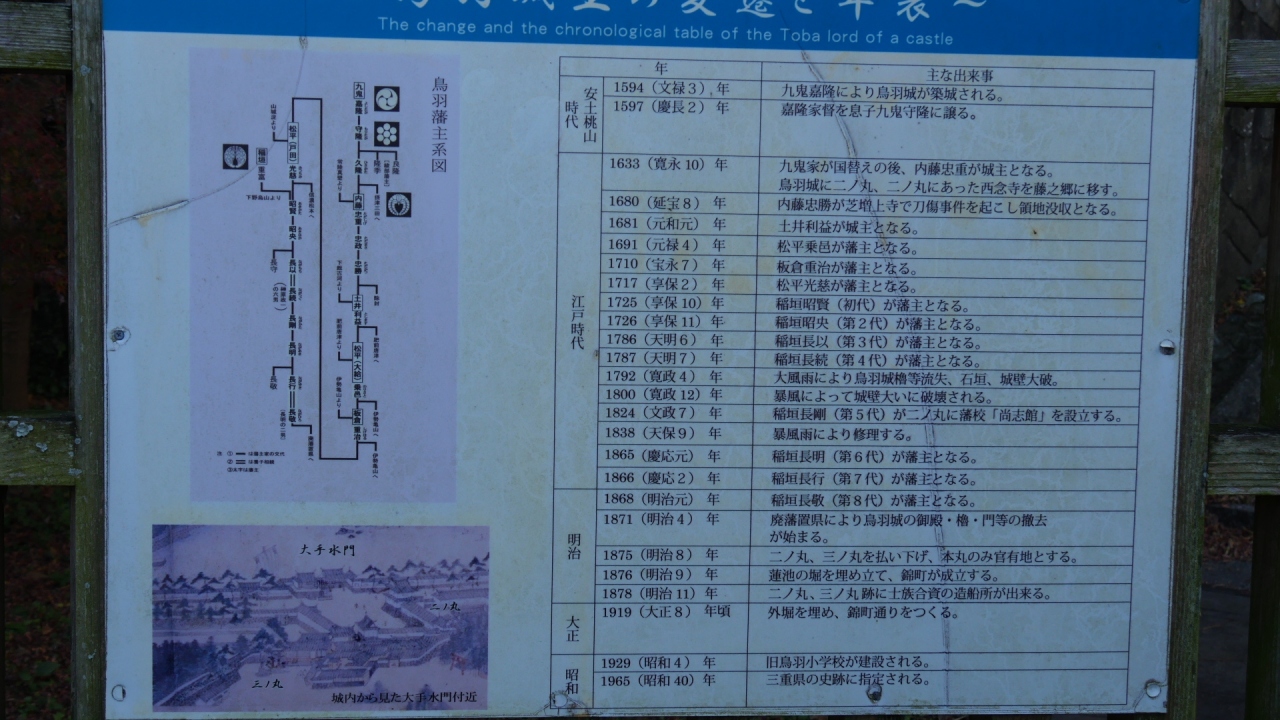 鳥羽城主の変遷と年表～
The change and the chronological table of the Toba lord of a castle
鳥羽藩主系図
九鬼 嘉隆 守隆 久隆
内藤 忠重 忠政 忠勝
土井 利益
松平（大給）乗邑
板倉 重治
松平（戸田）光慈
稲垣 重富
昭賢 昭央
長以 長続 長剛 長明 長行 長敬
長守
長敬
下野烏山より
大手水門
二ノ丸
三ノ丸
城内から見た大手水門付近
年 主な出来事
安土桃山時代
1594（文禄３）年 九鬼嘉隆により鳥羽城が築城される。
1597（慶長２）年 嘉隆家督を息子九鬼守隆に譲る。
江戸時代
1633（寛永 10）年 九鬼家が国替えの後、内藤忠重が城主となる。
鳥羽城に二ノ丸、二ノ丸にあった西念寺を藤之郷に移す。
1680（延宝８）年 内藤忠勝が芝増上寺で刀傷事件を起こし領地没収となる。
1681（元和元）年 土井利益が城主となる。
1691（元禄４）年 松平乗邑が藩主となる。
1710（宝永７）年 板倉重治が藩主となる。
1717（享保２）年 松平光慈が藩主となる。
1725（享保 10）年 稲垣昭賢（初代）が藩主となる。
1726（享保 11）年 稲垣昭央（第２代）が藩主となる。
1786（天明６）年 稲垣長以（第３代）が藩主となる。
1787（天明７）年 稲垣長続（第４代）が藩主となる。
1792（寛政４）年 大風雨により鳥羽城櫓等流失、石垣、城壁大破。
1800（寛政 12）年 暴風によって城壁大いに破壊される。
1824（文政７）年 稲垣長剛（第５代）が二ノ丸に藩校「尚志館」を設立する。
1838（天保９）年 暴風雨により修理する。
1865（慶応元）年 稲垣長明（第６代）が藩主となる。
1866（慶応２）年 稲垣長行（第７代）が藩主となる。
明治
1868（明治元）年 稲垣長敬（第８代）が藩主となる。
1871（明治４）年 廃藩置県により鳥羽城の御殿・櫓・門等の撤去
が始まる。
1875（明治８）年 二ノ丸、三ノ丸を払い下げ、本丸のみ官有地とする。
1876（明治９）年 蓮池の堀を埋め立て、錦町が成立する。
1878（明治 11）年 二ノ丸、三ノ丸跡に士族合資の造船所が出来る。
大正
1919（大正８）年頃 外堀を埋め、錦町通りをつくる。
昭和
1929（昭和４）年 旧鳥羽小学校が建設される。
1965（昭和 40）年 三重県の史跡に指定される。